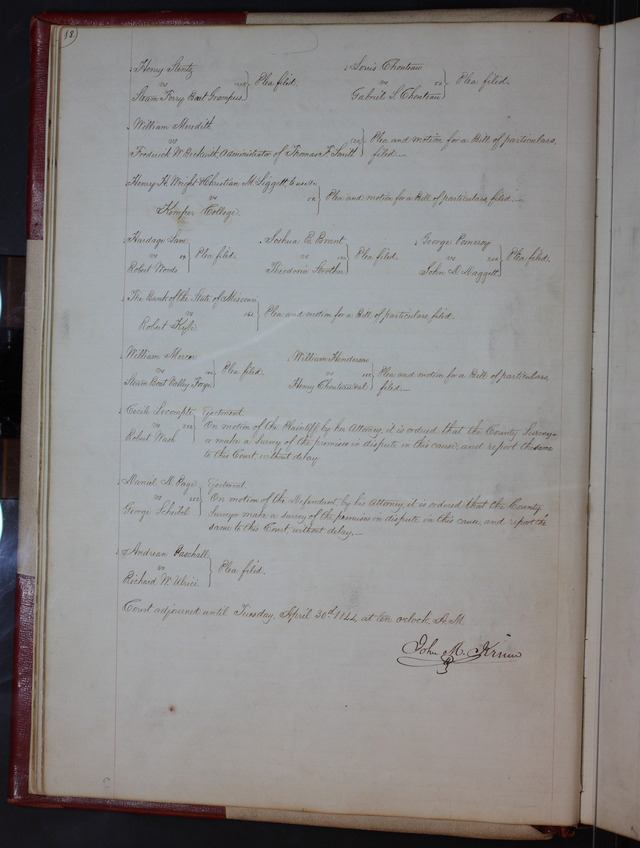 18.
Henry Stentz
vs
Steam Ferry Boat Grampus
Plea filed.
Louis Chouteau
vs
Gabriel S. Chouteau
Plea filed.
William Meredith
vs
Frederick W. Beckwith, Administrator of Thomas F. Smith
Plea and motion for a Bill of particulars,
filed.—
Henry H. Wright & Christian M. Liggett,
vs
Kemper College.
Plea and motion for a Bill of particulars, filed.—
Hardage Lane
vs
Robert Woods
Plea filed.
Joshua B. Brant
vs
Plea filed.
George Pomeroy
vs
John D. Daggett
Plea filed.
The Bank of the State of Missouri
vs
Robert
Plea and motion for a Bill of particulars, filed.
William Mercer
vs
Steam Boat Valley Forge
Plea filed.
William Henderson
vs
Henry Chouteau et al
Plea and motion for a Bill of particulars,
filed—
Cecile Lecompte
vs
Robert Wash
Ejectment.
On motion of the Plaintiff by her Attorney, it is ordered that the County Survey-
or make a Survey of the premises in dispute in this cause, and report the same
to this Court, without delay
Daniel D. Page
vs
George
Ejectment.
On motion of the Defendant by his Attorney, it is ordered that the County
Surveyor make a survey of the premises in dispute in this cause, and report the
same to this Court, without delay,—
Andrean Paschall
vs
Richard W. Ulrici
Plea filed.
Court adjourned until Tuesday, April 30th 1844, at ten o'clock, A.M
John M. Krum